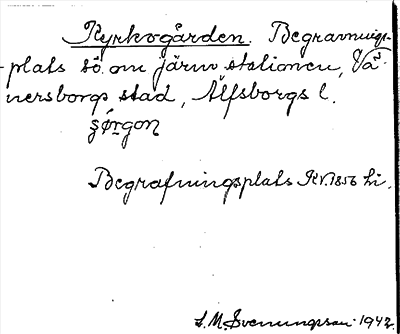 Kyrkogården. Begravnings-
-plats sö. om järnv. stationen, Vä-
nersborgs stad, Älfsborgs l.
Begrafningsplats KV. 1856 hi.
L. M. Svenungsson 1942.